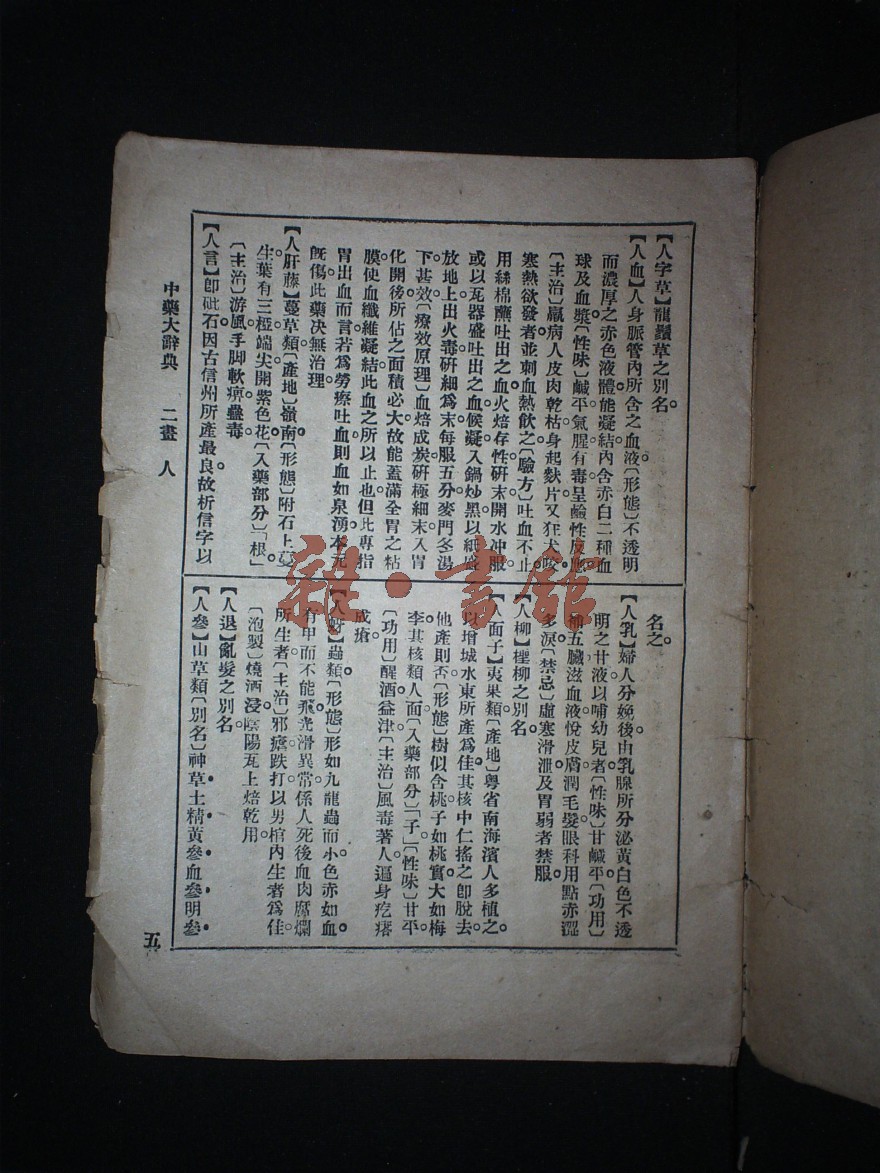 【人字草】龍鬚草之別名。
【人血】人身脈管內所含之血液〔形態〕不透明
而濃厚之赤色液體能凝結內含赤白二種血
球及血漿〔性味〕鹹平氣腥有毒呈鹼性反應
〔主治〕羸病人皮肉乾枯身起麩片又狂犬咬
寒熱欲發者並刺血熱飲之〔驗方〕吐血不止
用絲棉蘸吐出之血火焙存性研末開水冲服
或以瓦器盛吐出之血候凝入鍋炒黑以紙盛
放地上出火毒研細為末每服五分麥門冬湯
下甚效〔療效原理〕血焙成炭研極細末入胃
化開後所佔之面積必大故能蓋滿全胃之粘
膜使血纖維凝結此血之所以止也但此專指
胃出血而言若為勞瘵吐血則血如泉湧本元
旣傷此藥決無治理
【人肝藤】蔓草類〔產地〕嶺南〔形態〕附石上蔓
生葉有三椏端尖開紫色花〔入藥部分〕「根」
〔主治〕游風手脚軟痹蠱毒
【人言】卽砒石因古信州所產最良故析信字以
名之。
【人乳】婦人分娩後由乳腺所分泌黃白色不透
明之甘液以哺幼兒者〔性味〕甘鹹平〔功用〕
補五臟滋血液悅皮膚潤毛髮眼科用點赤澀
多淚〔禁忌〕虛寒滑泄及胃弱者禁服
【人柳】檉柳之別名
【人面子】夷果類〔產地〕粵省南海濱人多植之。
以增城水東所產為佳其核中仁搖之卽脫去
他產則否〔形態〕樹似含桃子如桃實大如梅
李其核類人面〔入藥部分〕「子」〔性味〕甘平
〔功用〕醒酒益津〔主治〕風毒著人遍身疙瘩
成瘡
【人蚜】蟲類〔形態〕形如九龍蟲而小色赤如血
有甲而不能飛光滑異常係人死後血肉腐爛
所生者〔主治〕邪瘧跌打以男棺內生者為佳
〔泡製〕燒酒浸陰陽瓦上焙乾用
【人退】亂髮之別名
【人參】山草類〔別名〕神草土精黃參血參明參
中藥大辭典 二畫 人
五
雜·書館